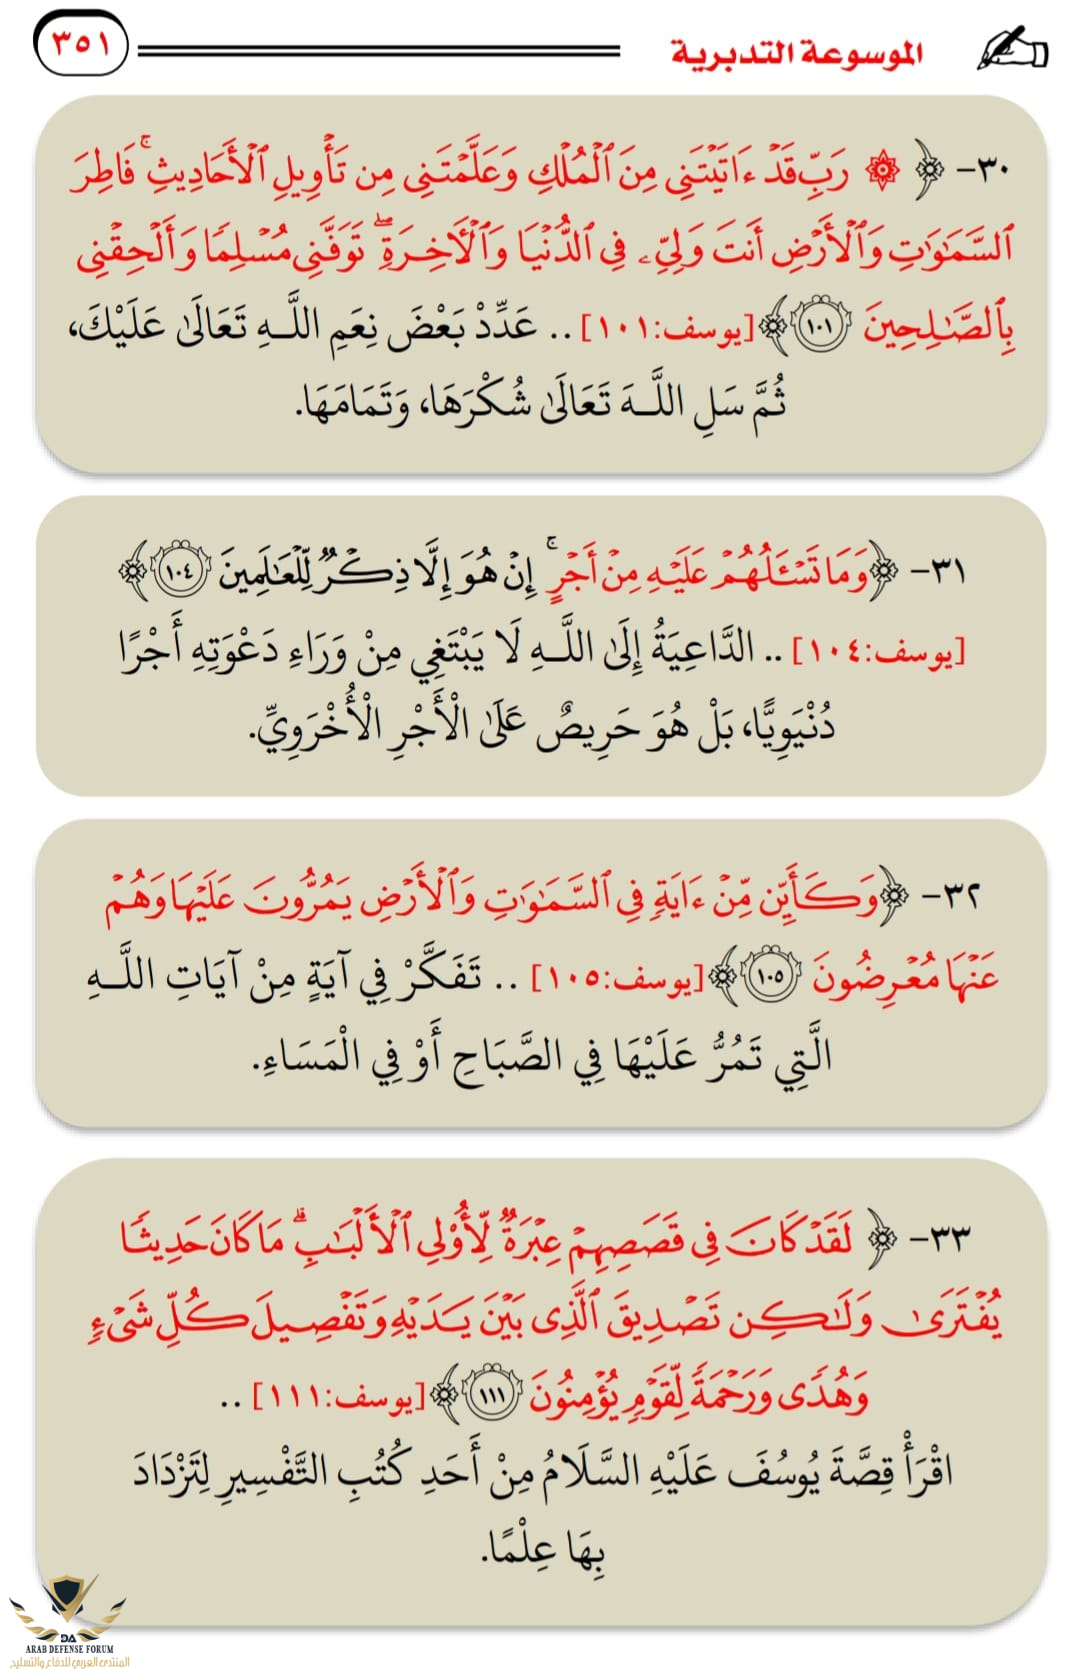 الموسوعة التدبرية
٣٥١
٣٠- ﴿ ۞ رَبِّ قَدۡ ءَاتَيۡتَنِي مِنَ ٱلۡمُلۡكِ وَعَلَّمۡتَنِي مِن تَأۡوِيلِ ٱلۡأَحَادِيثِۚ فَاطِرَ
ٱلسَّمَٰوَٰتِ وَٱلۡأَرۡضِ أَنتَ وَلِيِّۦ فِي ٱلدُّنۡيَا وَٱلۡأٓخِرَةِۖ تَوَفَّنِي مُسۡلِمٗا وَأَلۡحِقۡنِي
بِٱلصَّٰلِحِينَ ١٠١ ﴾ [يوسف:١٠١] .. عَدِّدْ بَعْضَ نِعَمِ اللَّـهِ تَعَالَىٰ عَلَيْكَ،
ثُمَّ سَلِ اللَّـهَ تَعَالَىٰ شُكْرَهَا، وَتَمَامَهَا.
٣١- ﴿وَمَا تَسۡـَٔلُهُمۡ عَلَيۡهِ مِنۡ أَجۡرٍۚ إِنۡ هُوَ إِلَّا ذِكۡرٞ لِّلۡعَٰلَمِينَ ١٠٤ ﴾
[يوسف:١٠٤] .. الدَّاعِيَةُ إِلَىٰ اللَّـهِ لَا يَبْتَغِي مِنْ وَرَاءِ دَعْوَتِهِ أَجْرًا
دُنْيَوِيًّا، بَلْ هُوَ حَرِيصٌ عَلَىٰ الْأَجْرِ الْأُخْرَوِيِّ.
٣٢- ﴿وَكَأَيِّن مِّنۡ ءَايَةٖ فِي ٱلسَّمَٰوَٰتِ وَٱلۡأَرۡضِ يَمُرُّونَ عَلَيۡهَا وَهُمۡ
عَنۡهَا مُعۡرِضُونَ ١٠٥ ﴾ [يوسف:١٠٥] .. تَفَكَّرْ فِي آيَةٍ مِنْ آيَاتِ اللَّـهِ
الَّتِي تَمُرُّ عَلَيْهَا فِي الصَّبَاحِ أَوْ فِي الْمَسَاءِ.
٣٣- ﴿ لَقَدۡ كَانَ فِي قَصَصِهِمۡ عِبۡرَةٞ لِّأُوْلِي ٱلۡأَلۡبَٰبِۗ مَا كَانَ حَدِيثٗا
يُفۡتَرَىٰ وَلَٰكِن تَصۡدِيقَ ٱلَّذِي بَيۡنَ يَدَيۡهِ وَتَفۡصِيلَ كُلِّ شَيۡءٖ
وَهُدٗى وَرَحۡمَةٗ لِّقَوۡمٖ يُؤۡمِنُونَ ١١١ ﴾ [يوسف:١١١] ..
اقْرَأْ قِصَّةَ يُوسُفَ عَلَيْهِ السَّلَامُ مِنْ أَحَدِ كُتُبِ التَّفْسِيرِ لِتَزْدَادَ
بِهَا عِلْمًا.
DA
ARAB DEFENSE FORUM
المنتدى العربي للدفاع والتسليح